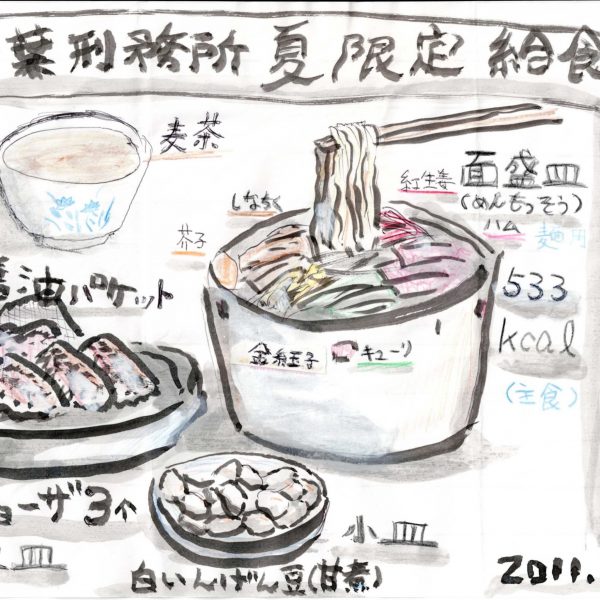 葉刑務所 夏限定 給食
麦茶
しなちく
芥子
紅生姜
面盛皿
(めんもっそう)
ハム
麺用
油パケット
533
kcal
(主食)
金糸玉子
キューリ
ョーザ3ケ
皿
小皿
白いんげん豆(甘煮)
2011.